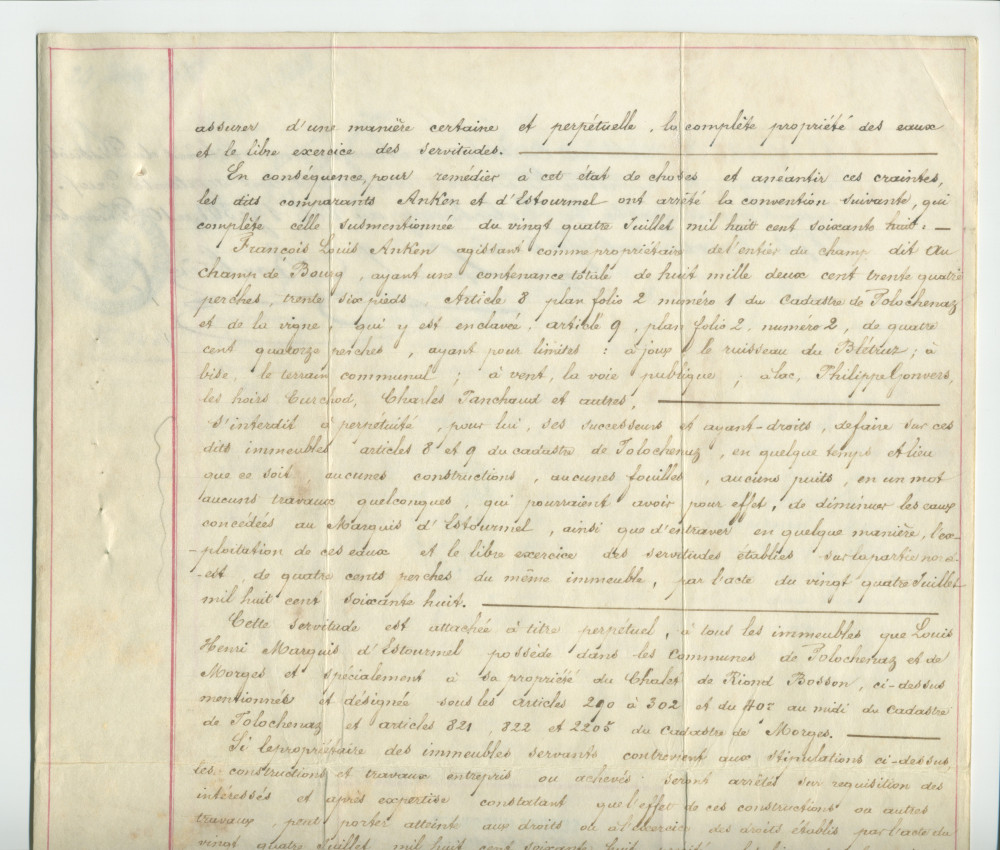 assurer d'une manière certaine et perpétuelle, la complète propriété des eaux
et le libre exercice des servitudes.
En conséquence, pour remédier à cet état de choses et anéantir ces craintes,
les dits comparants Anken et d'Estourmel ont arrêté la convention suivante, qui
complète celle susmentionnée du vingt quatre Juillet mil huit cent soixante huit. —
François Louis Anken agissant comme propriétaire de l'entier du champ dit Au
champ de Bourg, ayant une contenance totale de huit mille deux cent trente quatre
perches, trente six pieds. Article 8 plan folio 2 numéro 1 du Cadastre de Tolochenaz
et de la vigne, qui y est enclavée, article 9, plan folio 2, numéro 2, de quatre
cent quatorze perches, ayant pour limites : à joux, le ruisseau du Blétruz ; à
bise, le terrain communul ; à vent, la voie publique ; à lac, Philippe Gonvers,
les hoirs Curchod, Charles Tanchaud et autres,
s'interdit à perpétuité, pour lui, ses successeurs et ayant-droits, de faire sur ces
dits immeubles articles 8 et 9 du cadastre de Tolochenaz, en quelque temps et lieu
que ce soit, aucunes constructions, aucunes fouilles, aucuns puits, en un mot
aucuns travaux quelconques, qui pourraient avoir pour effet, de diminuer les eaux
concédées au Marquis d'Estourmel, ainsi que d'entraver en quelque manière, l'ex-
-ploitation de ces eaux et le libre exercice des servitudes établies sur la partie nord-
-est, de quatre cents perches du même immeuble, par l'acte du vingt quatre Juillet
mil huit cent soixante huit.
Cette servitude est attachée à titre perpétuel, à tous les immeubles que Louis
Henri Marquis d'Estourmel possède dans les Communes de Tolochenaz et de
Morges et spécialement à sa propriété du Chalet de Riond Bosson, ci-dessus
mentionnés et désignée sous les articles 290 à 302 et du au midi du Cadastre
de Tolochenaz et articles 821, 822 et 2205 du Cadastre de Morges.
Si le propriétaire des immeubles servants contrevient aux stipulations ci-dessus,
les constructions et travaux entrepris ou achevés seront arrêtés sur requisition des
intéressés et après expertise constatant que l'effet de ces constructions ou autres
travaux, peut porter atteint aux droits ou à l'exercice des droits établis par l'acte du
vingt quatre Juillet mil huit cent soixante huit